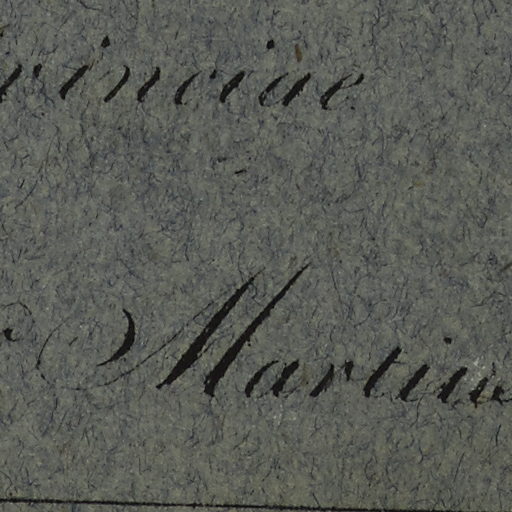 vinciae
Martiu